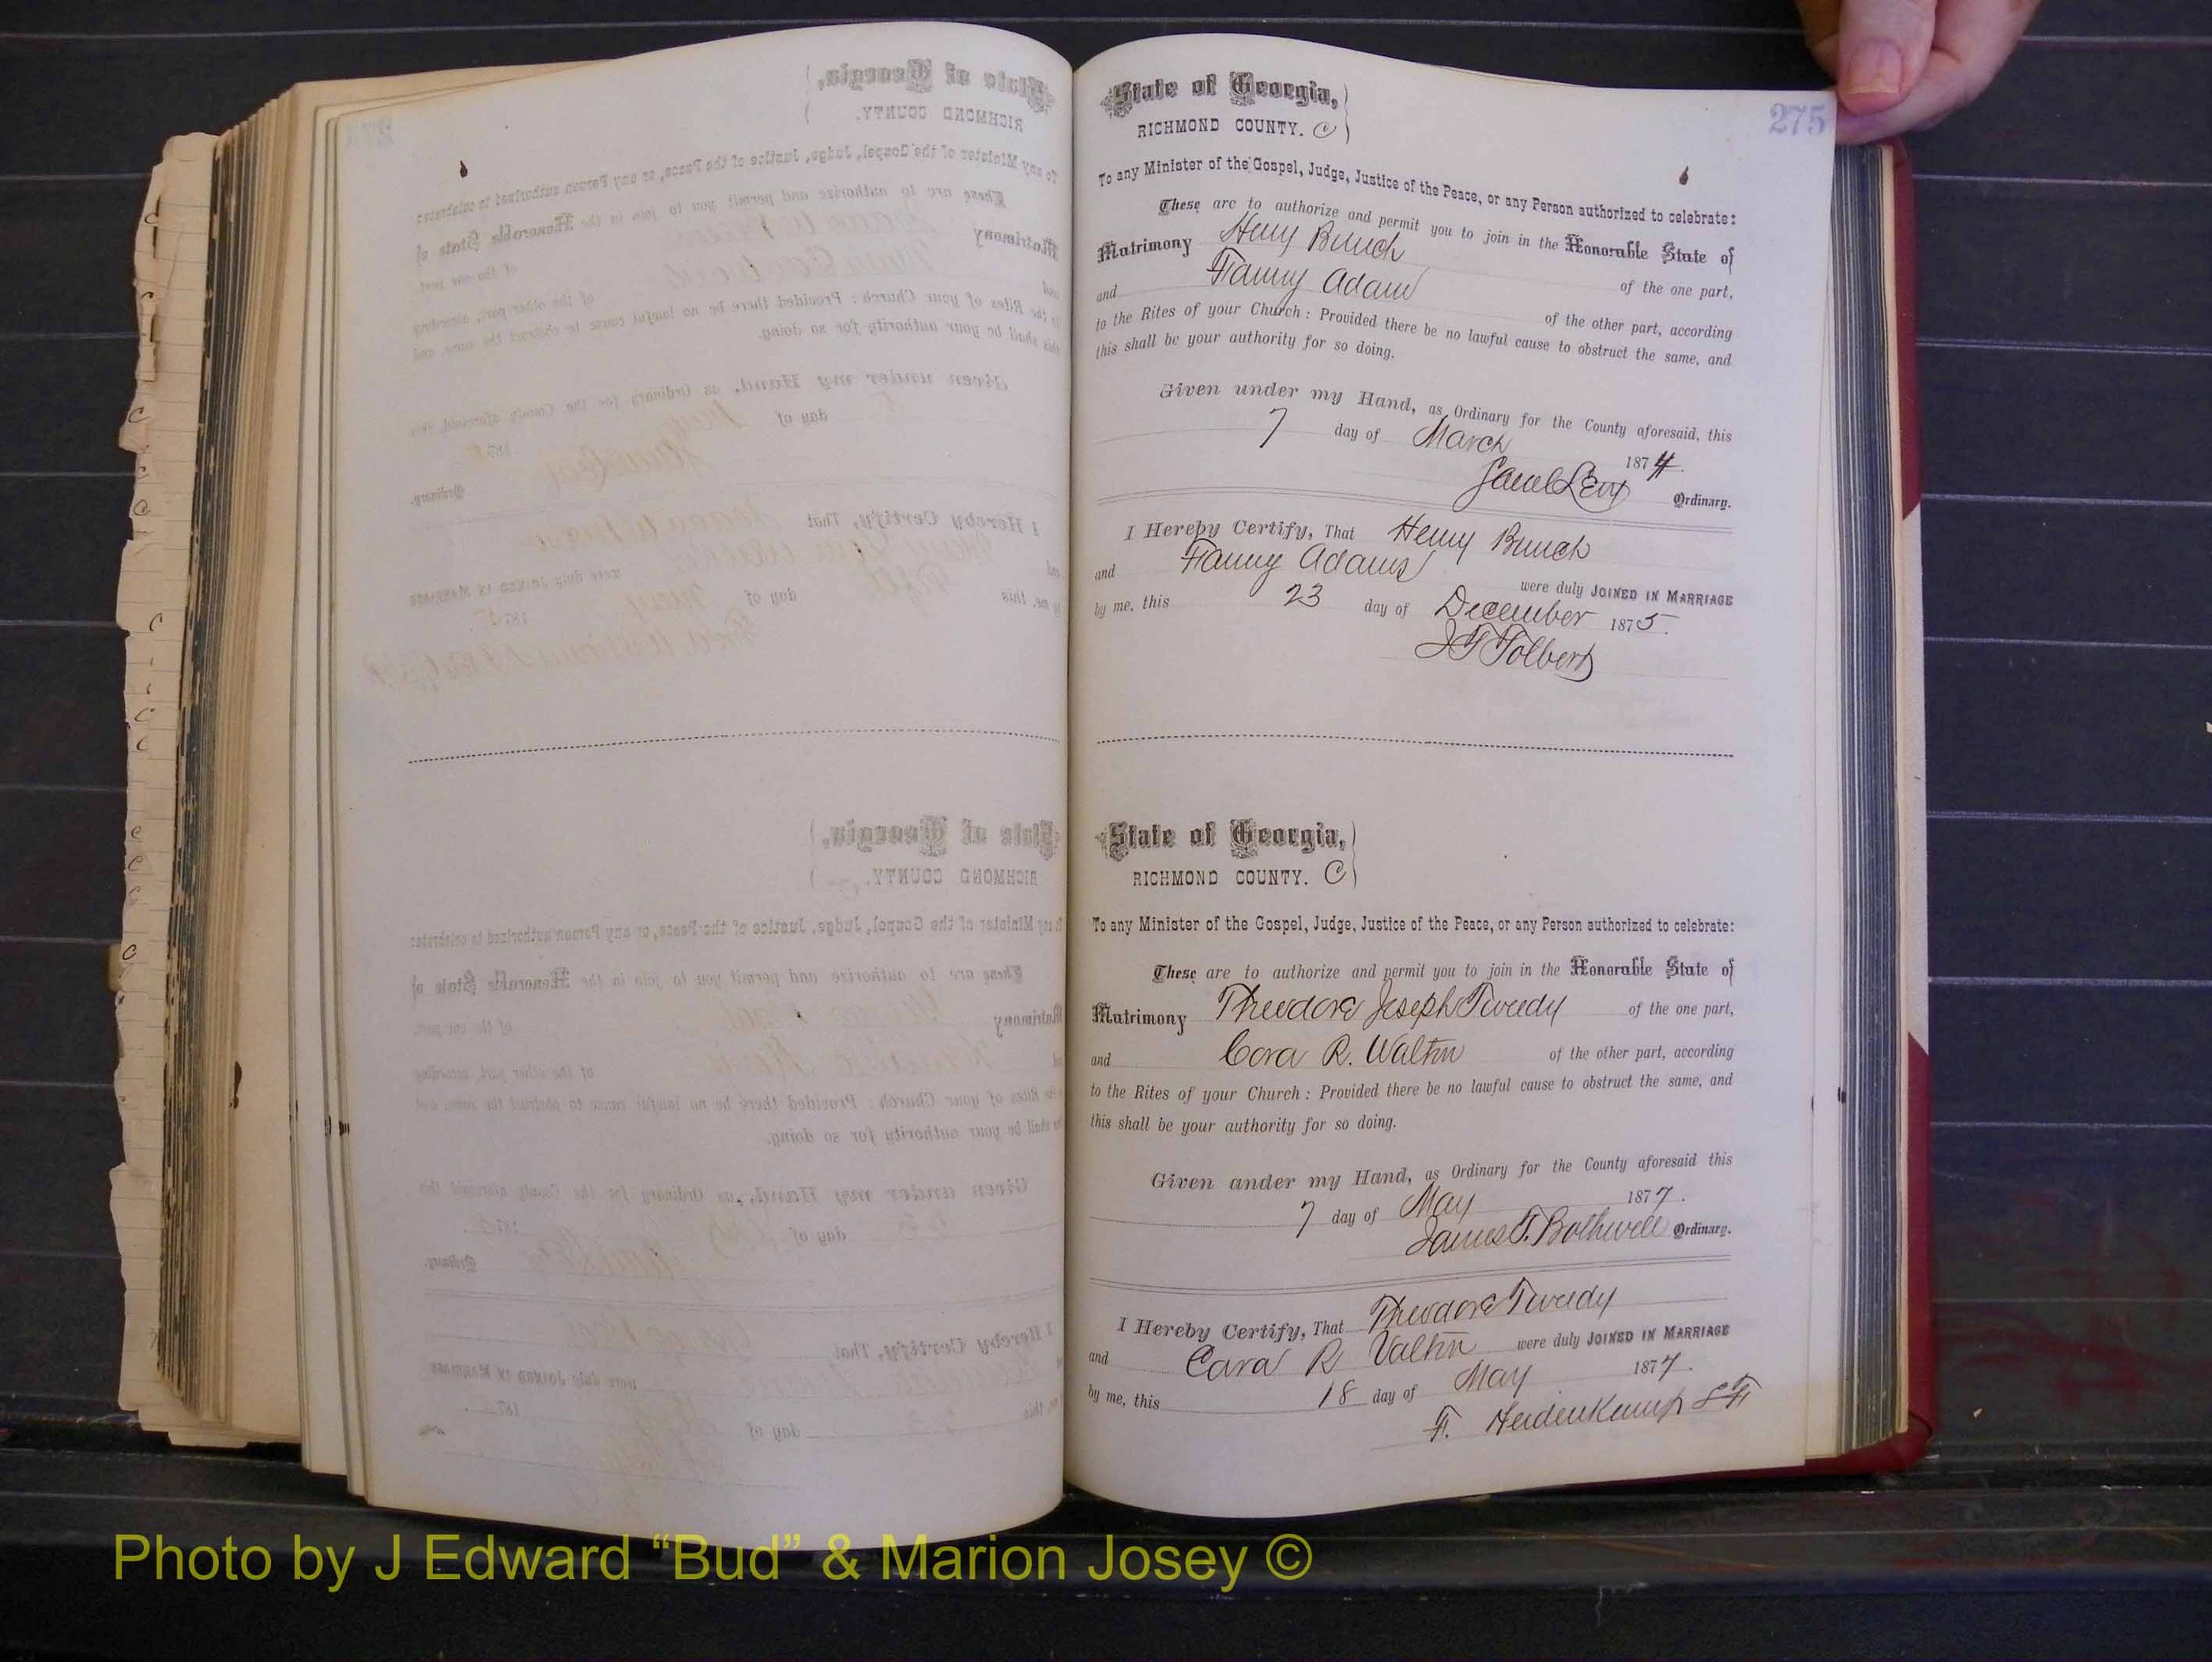 275
State of Georgia,
RICHMOND COUNTY. C
To any Minister of the Gospel, Judge, Justice of the Peace, or any Person authorized to celebrate:
These are to authorize and permit you to join in the Honorable State of
Matrimony Henry Bunch of the one part,
and Fanny Adams of the other part, according
to the Rites of your Church: Provided there be no lawful cause to obstruct the same, and
this shall be your authority for so doing.
Given under my Hand, as Ordinary for the County aforesaid, this
7 day of March 1874.
Saml Levy Ordinary.
I Hereby Certify, That Henry Bunch
and Fanny Adams were duly JOINED IN MARRIAGE
by me, this 23 day of December 1875.
J T Tolbert
State of Georgia,
RICHMOND COUNTY. C
To any Minister of the Gospel, Judge, Justice of the Peace, or any Person authorized to celebrate:
These are to authorize and permit you to join in the Honorable State of
Matrimony Theodore Joseph Tweedy of the one part,
and Cora R. Walton of the other part, according
to the Rites of your Church: Provided there be no lawful cause to obstruct the same, and
this shall be your authority for so doing.
Given under my Hand, as Ordinary for the County aforesaid this
7 day of May 1877.
James T. Bothwell Ordinary.
I Hereby Certify, That Theodore Tweedy
and Cara R Valton were duly JOINED IN MARRIAGE
by me, this 18 day of May 1877.
F. Heidenkamp
Photo by J Edward “Bud” & Marion Josey ©